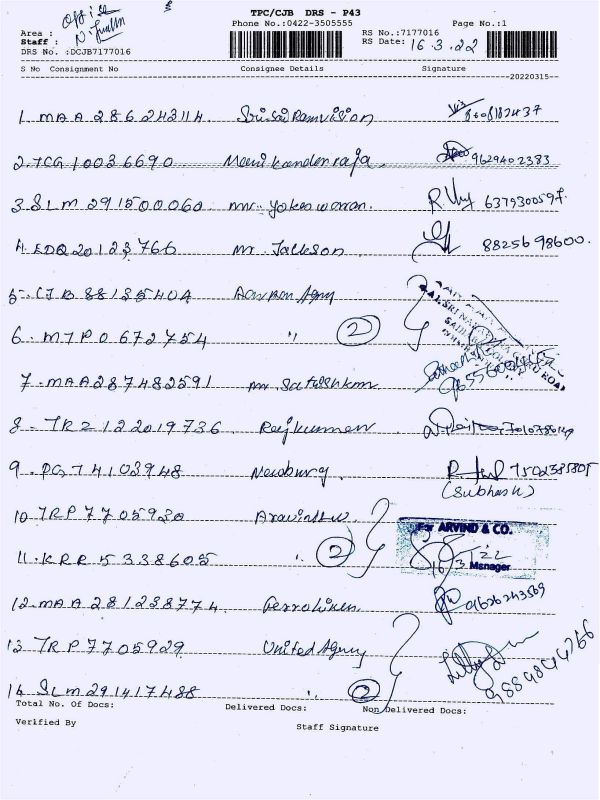 TPC/CJB DRS - P43
Phone No.:0422-3505555 Page No.:1
Area :
Staff :
RS No.:7177016
RS Date: 16.3.22
DRS No. :DCJB7177016
S No Consignment No Consignee Details Signature
20220315
1. MAA 286243114 Sri Sai Ramvision
2. TCG 10036690 9629402383
3. SLM 291500060 Mr. Yokeswaran.
4. EDQ 20123766 Mr. Jackson 8825698600.
5. CJB 88135404
6. MTP 0672754 " 2
7. MAA287482591 Mr. Satishkm
8. TRZ 122019736 Rajkumar
9. PGT 4103948 Newburg 7502385805
(Subhash)
10. TRP 7705930
For ARVIND & CO.
11. KRR 15338605 " 2
16/3/22 Manager
12. MAA 281238774 9626243569
13. TRP 7705929 United Agny
14. SLM 291417488 " 2 9889844766
Total No. Of Docs: Delivered Docs: Non Delivered Docs:
Verified By Staff Signature